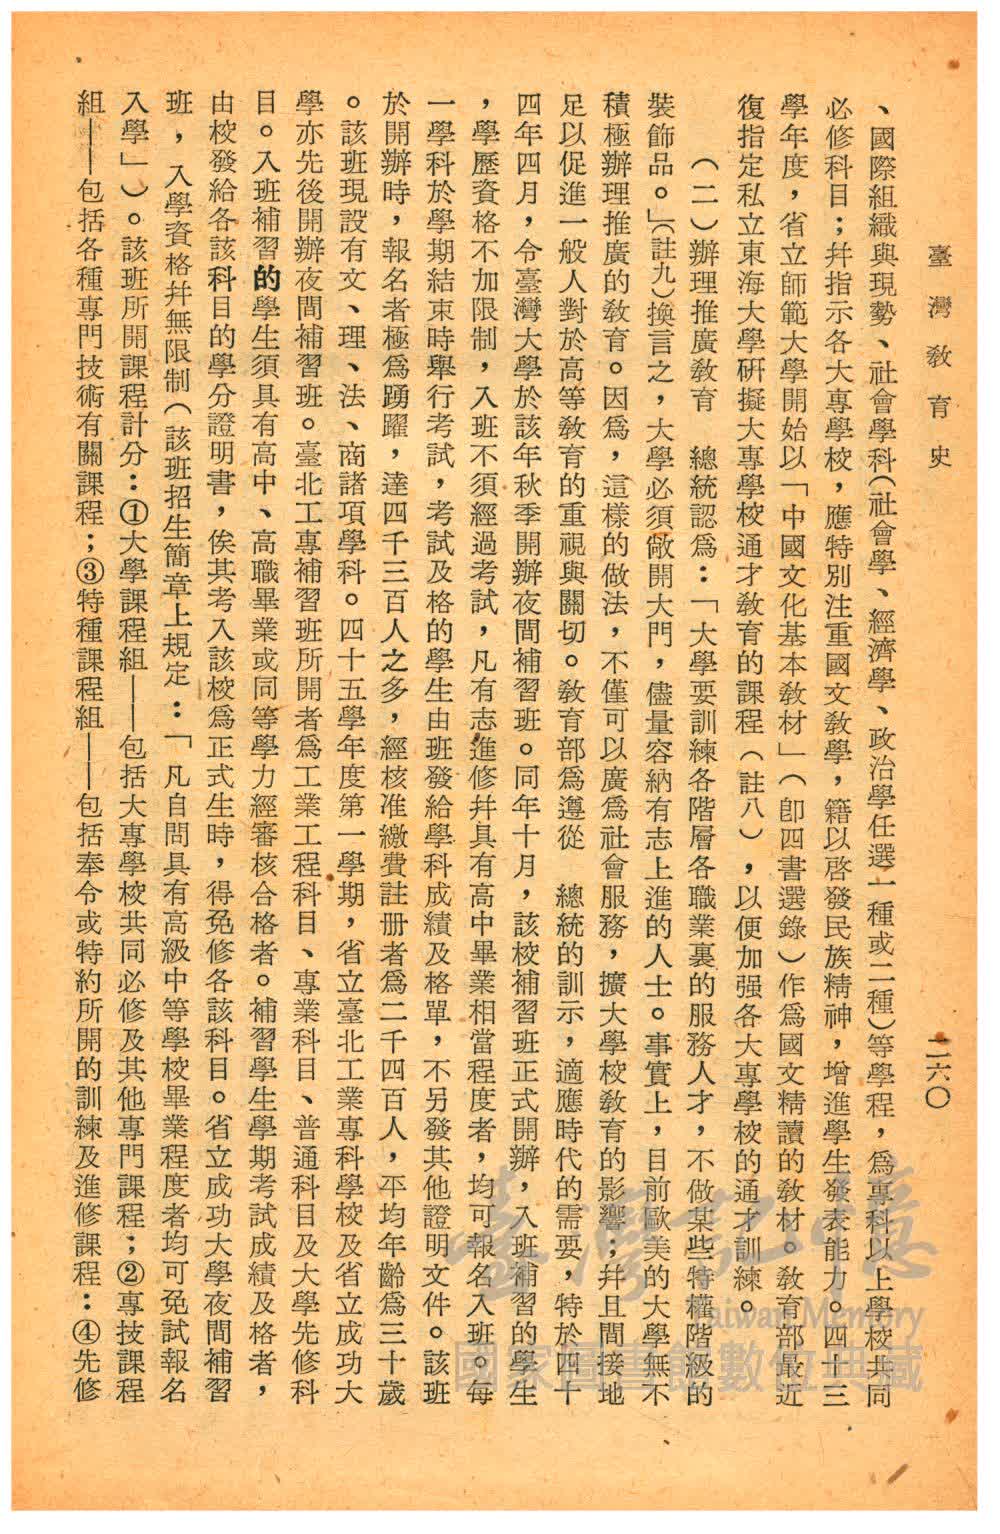 臺灣教育史
二六〇
、國際組織與現勢、社會學科(社會學、經濟學、政治學任選一種或二種)等學程,爲專科以上學校共同
必修科目;幷指示各大專學校,應特別注重國文敎學,籍以啓發民族精神,增進學生發表能力。四十三
學年度,省立師範大學開始以「中國文化基本敎材」(卽四書選錄)作爲國文精讀的敎材。敎育部最近
復指定私立東海大學硏擬大專學校通才敎育的課程(註八),以便加强各大專學校的通才訓練。
(二)辦理推廣敎育 總統認爲:「大學要訓練各階層各職業裏的服務人才,不做某些特權階級的
裝飾品。」(註九)換言之,大學必須敞開大門,儘量容納有志上進的人士。事實上,目前歐美的大學無不
積極辦理推廣的敎育。因爲,這樣的做法,不僅可以廣爲社會服務,擴大學校敎育的影響;幷且間接地
足以促進一般人對於高等敎育的重視與關切。敎育部爲遵從 總統的訓示,適應時代的需要,特於四十
四年四月,令臺灣大學於該年秋季開辦夜間補習班。同年十月,該校補習班正式開辦,入班補習的學生
,學歷資格不加限制,入班不須經過考試,凡有志進修幷具有高中畢業相當程度者,均可報名入班。每
一學科於學期結束時舉行考試,考試及格的學生由班發給學科成績及格單,不另發其他證明文件。該班
於開辦時,報名者極爲踴躍,達四千三百人之多,經核准繳費註册者爲二千四百人,平均年齡爲三十歲
。該班現設有文、理、法、商諸項學科。四十五學年度第一學期,省立臺北工業專科學校及省立成功大
學亦先後開辦夜間補習班。臺北工專補習班所開者爲工業工程科目、專業科目、普通科目及大學先修科
目。入班補習的學生須具有高中、高職畢業或同等學力經審核合格者。補習學生學期考試成績及格者,
由校發給各該科目的學分證明書,俟其考入該校爲正式生時,得免修各該科目。省立成功大學夜間補習
班,入學資格幷無限制(該班招生簡章上規定:「凡自問具有高級中等學校畢業程度者均可免試報名
入學」)。該班所開課程計分:①大學課程組——包括大專學校共同必修及其他專門課程;②專技課程
組——包括各種專門技術有關課程;③特種課程組——包括奉令或特約所開的訓練及進修課程:④先修
臺灣記憶
Taiwan Memory
國家圖書館數位典藏